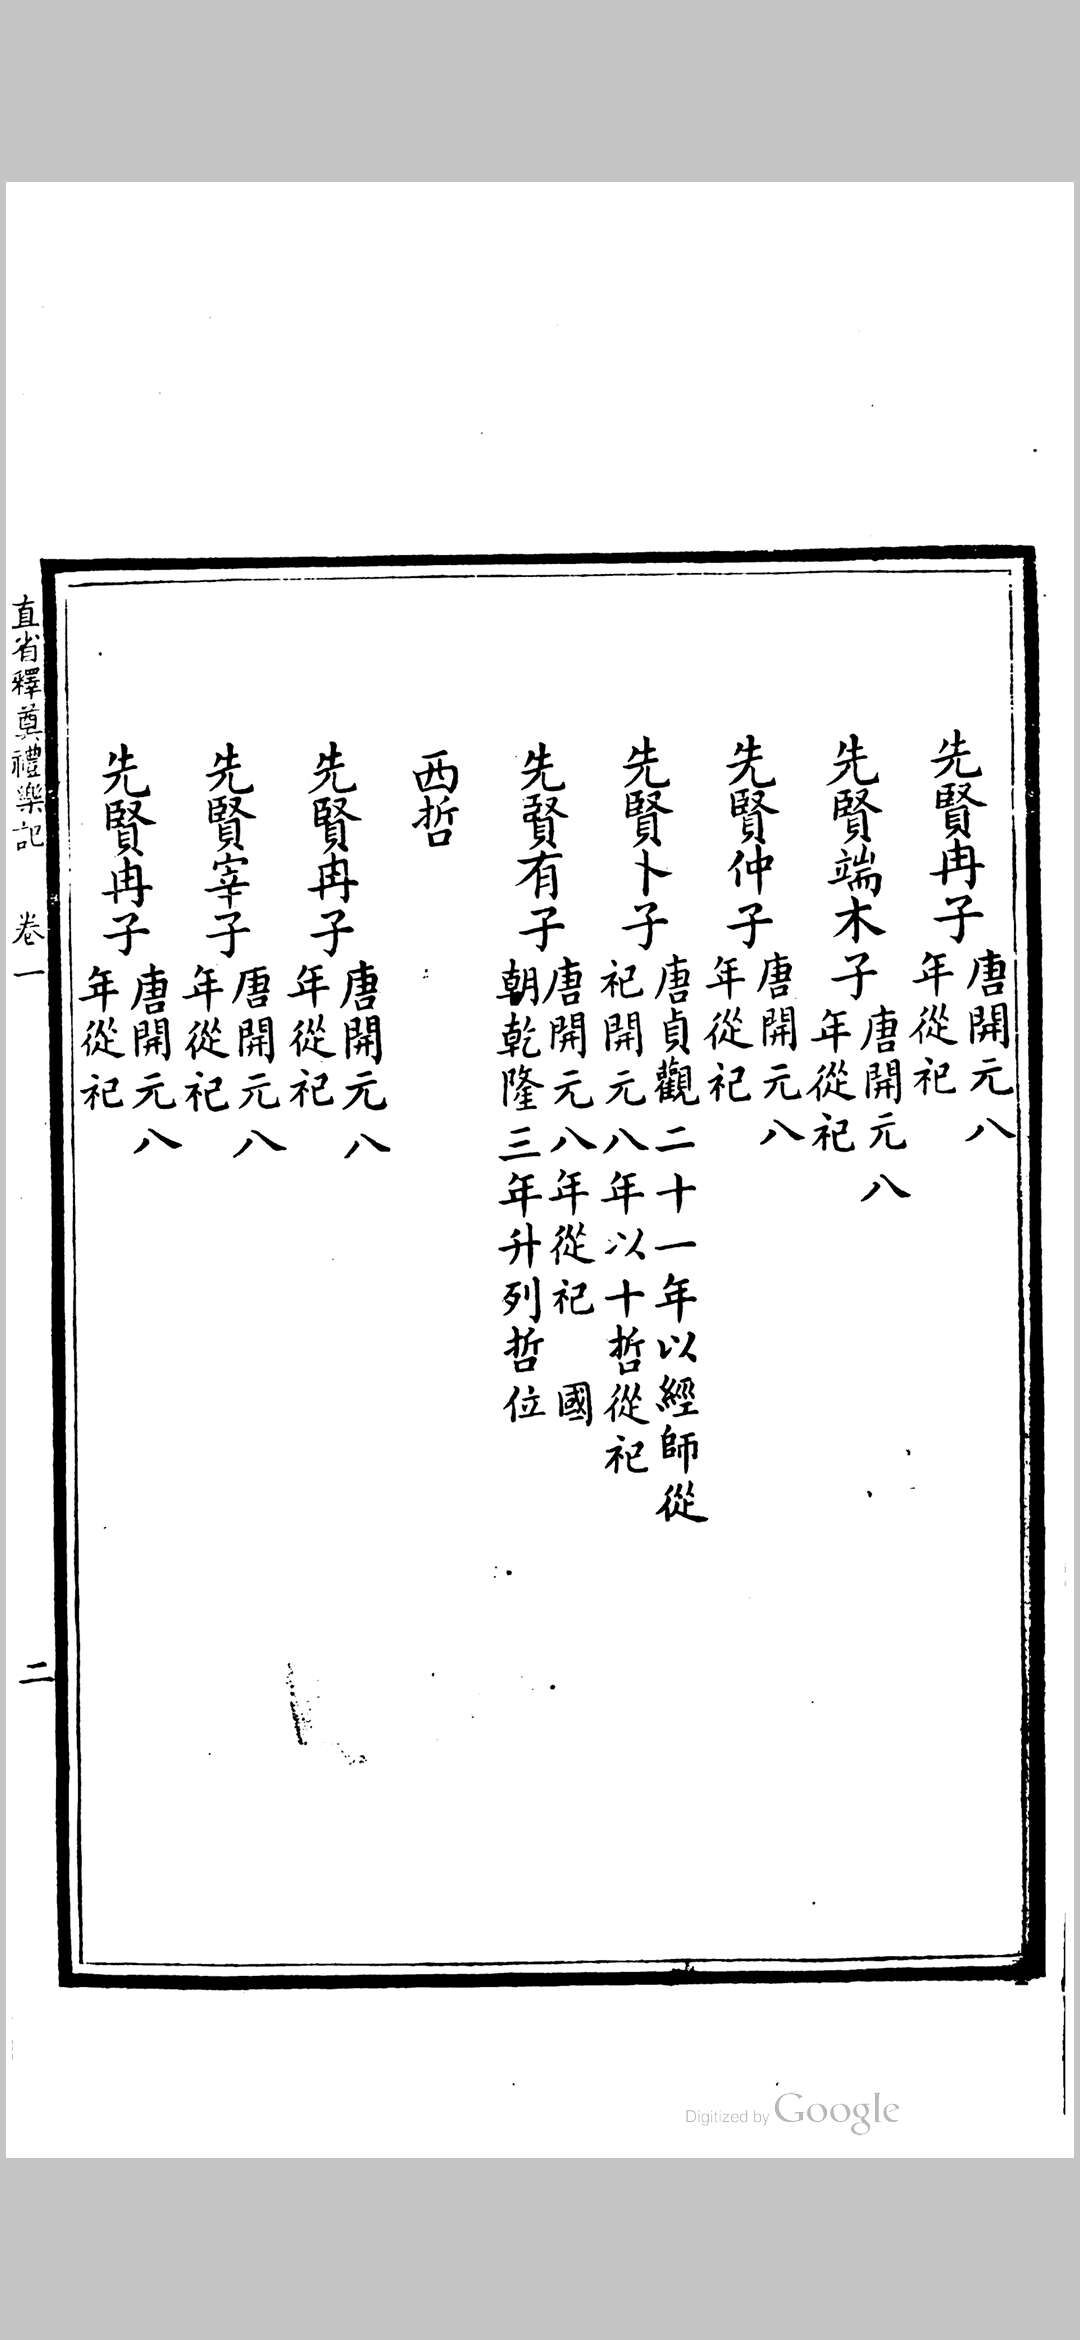 先賢冉子唐開元八年從祀
先賢端木子唐開元八年從祀
先賢仲子唐開元八年從祀
先賢卜子唐貞觀二十一年以經師從祀開元八年以十哲從祀
先賢有子唐開元八年從祀 國朝乾隆三年升列哲位
西哲
先賢冉子唐開元八年從祀
先賢宰子唐開元八年從祀
先賢冉子唐開元八年從祀
直省釋奠禮樂記 卷一 二
Digitized by Google